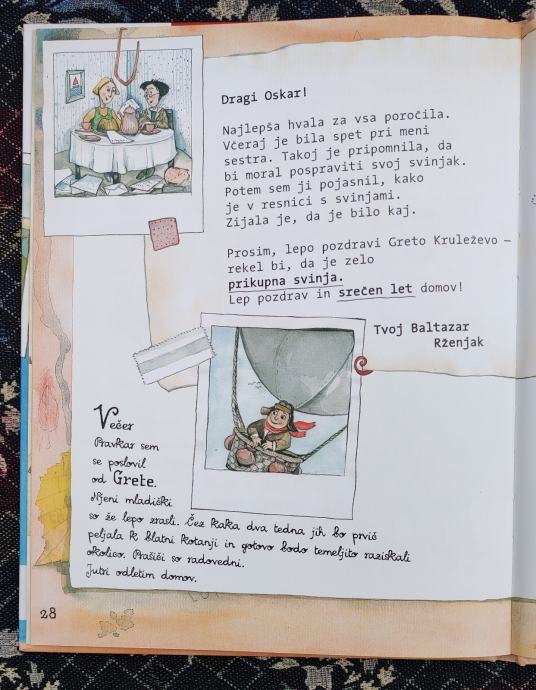 Dragi Oskar!
Najlepša hvala za vsa poročila.
Včeraj je bila spet pri meni
sestra. Takoj je pripomnila, da
bi moral pospraviti svoj svinjak.
Potem sem ji pojasnil, kako
je v resnici s svinjami.
Zijala je, da je bilo kaj.
Prosim, lepo pozdravi Greto Kruleževo –
rekel bi, da je zelo
prikupna svinja.
Lep pozdrav in srečen let domov!
Tvoj Baltazar
Rženjak
Večer
Pravkar sem
se poslovil
od Grete.
Njeni mladički
so že lepo zrasli. Čez kaka dva tedna jih bo prvič
peljala k blatni kotanji in gotovo bodo temeljito raziskali
okolico. Prašiči so radovedni.
Jutri odletim domov.
28